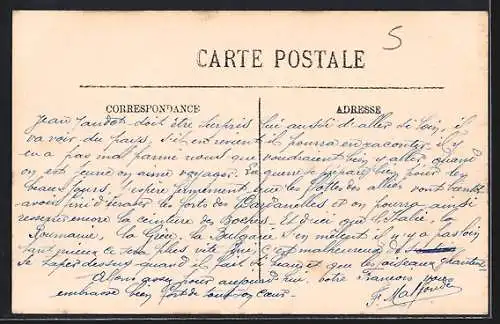 5
CARTE POSTALE
CORRESPONDANCE
ADRESSE
Jean doit être surpris lui aussi d'aller si loin, il
va voir du pays, s'il en revient il pourra en raconter. Il y
en a pas mal parmi nous que voudraient bien y aller, quand
on est jeune on aime voyager. La guerre se prépare bien pour les
beaux jours. J'espère fermement que les flottes des alliés vont bientôt
avoir fini d'écraser les forts des Dardanelles et on pourra ainsi
resserrer encore la ceinture de Boches. Et dire que l'Italie, la
Roumanie, la Grèce, la Bulgarie s'en mêlent il n'y a pas loin
tant mieux ce sera plus vite fini, c'est malheureux de
se taper dessus quand il fait si beau et que les oiseaux chantent
Allons assez pour aujourd'hui, votre François vous
embrasse bien fort de tout son cœur.
F.